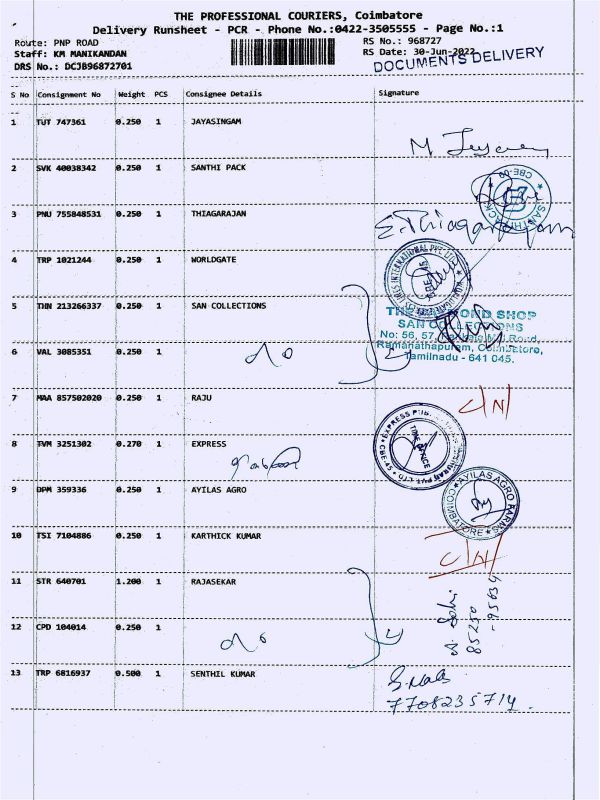 THE PROFESSIONAL COURIERS, Coimbatore
Delivery Runsheet - PCR - Phone No.:0422-3505555 - Page No.:1
Route: PNP ROAD RS No.: 968727
Staff: KM MANIKANDAN RS Date: 30-Jun-2022
DRS No.: DCJB96872701 DOCUMENTS DELIVERY
S No Consignment No Weight PCS Consignee Details Signature
1 TUT 747361 0.250 1 JAYASINGAM
M
2 SVK 40038342 0.250 1 SANTHI PACK
CBE-00 SANTHI PACK
3 PNU 755848531 0.250 1 THIAGARAJAN
E. Thiagarajan
4 TRP 1021244 0.250 1 WORLDGATE
INTERNATIONAL PVT LTD
CBE-45
5 THN 213266337 0.250 1 SAN COLLECTIONS
SHOP
SAN COLLECTIONS
No: 56, 57, Road,
6 VAL 3085351 0.250 1
Ramanathapuram, Coimbatore,
Tamilnadu - 641 045.
7 MAA 857502020 0.250 1 RAJU
C/N
8 TVM 3251302 0.270 1 EXPRESS
EXPRESS PUB. PVT. LTD. CBE-45
TIME OFFICE
9 DPM 359336 0.250 1 AYILAS AGRO
AYILAS AGRO FARMS COIMBATORE
10 TSI 7104886 0.250 1 KARTHICK KUMAR
C/N
11 STR 640701 1.200 1 RAJASEKAR
85250
-95634
12 CPD 104014 0.250 1
13 TRP 6816937 0.500 1 SENTHIL KUMAR
7708235714.